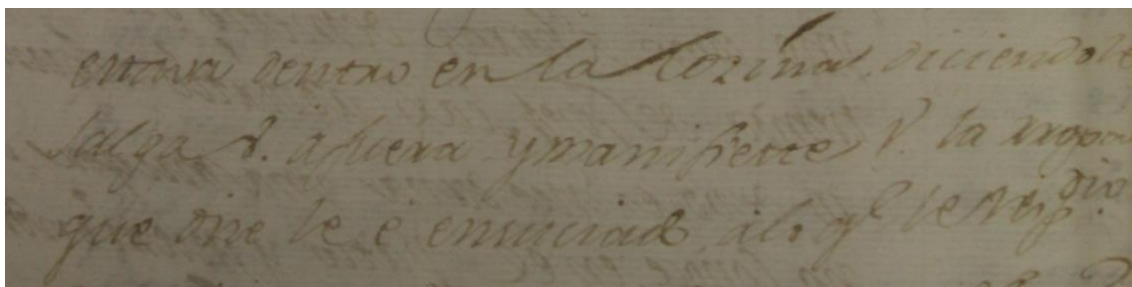 estava dentro en la Cozina, diciendole
salga V. afuera y manifieste V. la rropa
que dize le é ensuciado, a lo q.^e le resp.^dio